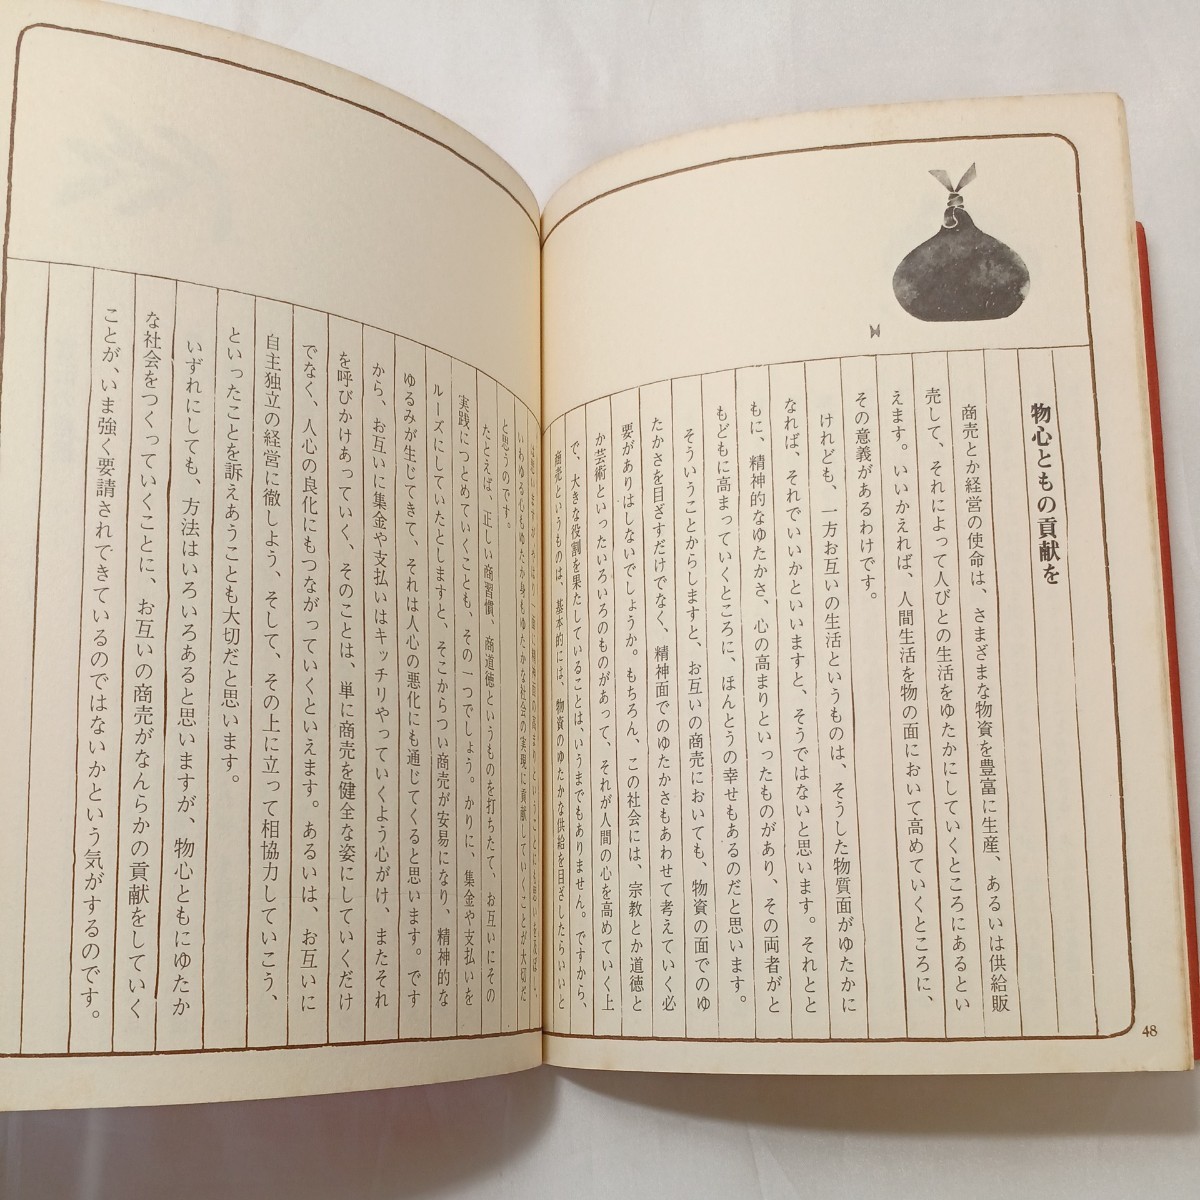 物心ともの貢献を
商売とか経営の使命は、さまざまな物資を豊富に生産、あるいは供給販
売して、それによって人びとの生活をゆたかにしていくところにあるとい
えます。いいかえれば、人間生活を物の面において高めていくところに、
その意義があるわけです。
けれども、一方お互いの生活というものは、そうした物質面がゆたかに
なれば、それでいいかといいますと、そうではないと思います。それとと
もに、精神的なゆたかさ、心の高まりといったものがあり、その両者がと
もどもに高まっていくところに、ほんとうの幸せもあるのだと思います。
そういうことからしますと、お互いの商売においても、物資の面でのゆ
たかさを目ざすだけでなく、精神面でのゆたかさもあわせて考えていく必
要がありはしないでしょうか。もちろん、この社会には、宗教とか道徳と
か芸術といったいろいろのものがあって、それが人間の心を高めていく上
で、大きな役割を果たしていることは、いうまでもありません。ですから、
商売というものは、基本的には、物資のゆたかな供給を目ざしたらいいと
は思いますが、やはり一面に精神面の高まりということにも思いを及ぼし、
いわゆる心もゆたか身もゆたかな社会の実現に貢献していくことが大切だ
と思うのです。
たとえば、正しい商習慣、商道徳というものを打ちたて、お互いにその
実践につとめていくことも、その一つでしょう。かりに、集金や支払いを
ルーズにしていたとしますと、そこからつい商売が安易になり、精神的な
ゆるみが生じてきて、それは人心の悪化にも通じてくると思います。です
から、お互いに集金や支払いはキッチリやっていくよう心がけ、またそれ
を呼びかけあっていく、そのことは、単に商売を健全な姿にしていくだけ
でなく、人心の良化にもつながっていくといえます。あるいは、お互いに
自主独立の経営に徹しよう、そして、その上に立って相協力していこう、
といったことを訴えあうことも大切だと思います。
いずれにしても、方法はいろいろあると思いますが、物心ともにゆたか
な社会をつくっていくことに、お互いの商売がなんらかの貢献をしていく
ことが、いま強く要請されてきているのではないかという気がするのです。
48